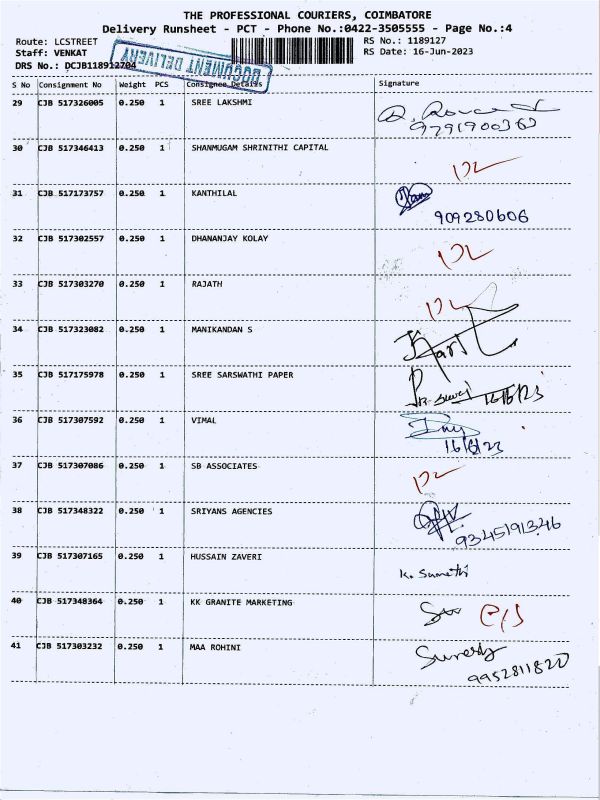 THE PROFESSIONAL COURIERS, COIMBATORE
Delivery Runsheet - PCT - Phone No.:0422-3505555 - Page No.:4
Route: LCSTREET RS No.: 1189127
Staff: VENKAT RS Date: 16-Jun-2023
DRS No.: DCJB118912704
DOCUMENT DELIVERY
S No Consignment No Weight PCS Consignee Details Signature
29 CJB 517326005 0.250 1 SREE LAKSHMI
30 CJB 517346413 0.250 1 SHANMUGAM SHRINITHI CAPITAL
31 CJB 517173757 0.250 1 KANTHILAL
909280606
32 CJB 517302557 0.250 1 DHANANJAY KOLAY
33 CJB 517303270 0.250 1 RAJATH
34 CJB 517323082 0.250 1 MANIKANDAN S
35 CJB 517175978 0.250 1 SREE SARSWATHI PAPER
16/6/23
36 CJB 517307592 0.250 1 VIMAL
16/6/23
37 CJB 517307086 0.250 1 SB ASSOCIATES
38 CJB 517348322 0.250 1 SRIYANS AGENCIES
9345191346
39 CJB 517307165 0.250 1 HUSSAIN ZAVERI
K. Sumethi
40 CJB 517348364 0.250 1 KK GRANITE MARKETING
41 CJB 517303232 0.250 1 MAA ROHINI
Suresh
9952811820